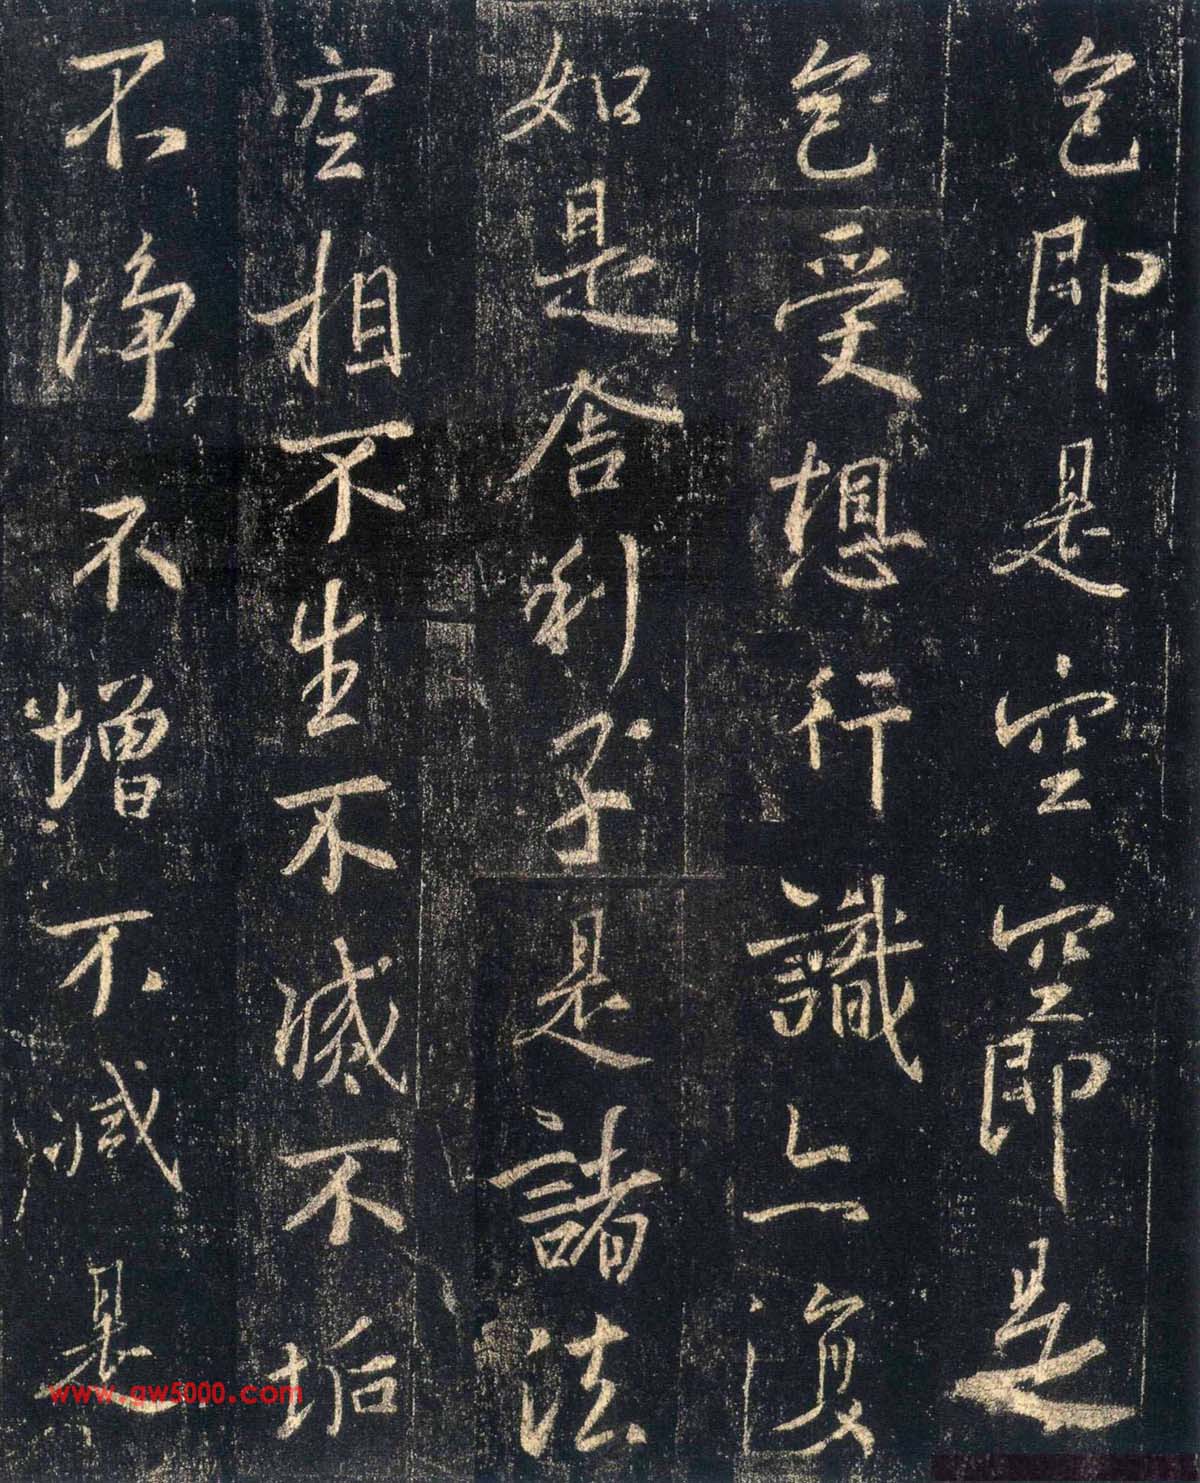 色即是空空即是
色受想行識亦復
如是舍利子是諸法
空相不生不滅不垢
不淨不增不減是
www.gw5000.com